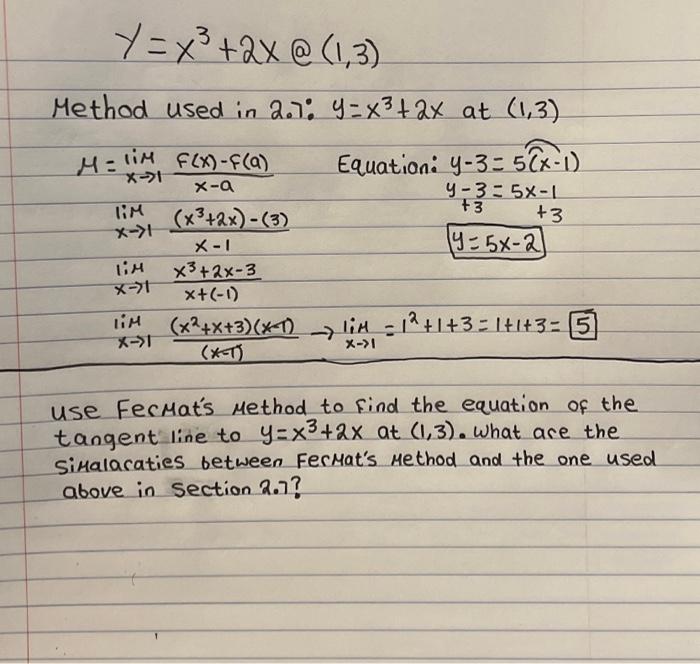 Y = x³ + 2x @ (1,3)
Method used in 2.7: y = x³ + 2x at (1,3)
M = lim x→1 F(x) - F(a) / x - a
lim x→1 (x³ + 2x) - (3) / x - 1
lim x→1 x³ + 2x - 3 / x + (-1)
lim x→1 (x² + x + 3)(x-1) / (x-1) → lim x→1 = 1² + 1 + 3 = 1 + 1 + 3 = 5
Equation: y - 3 = 5(x - 1)
y - 3 = 5x - 1
+3 +3
y = 5x - 2
use Fermat's Method to find the equation of the
tangent line to y = x³ + 2x at (1,3). What are the
simalaraties between Fermat's Method and the one used
above in section 2.7?